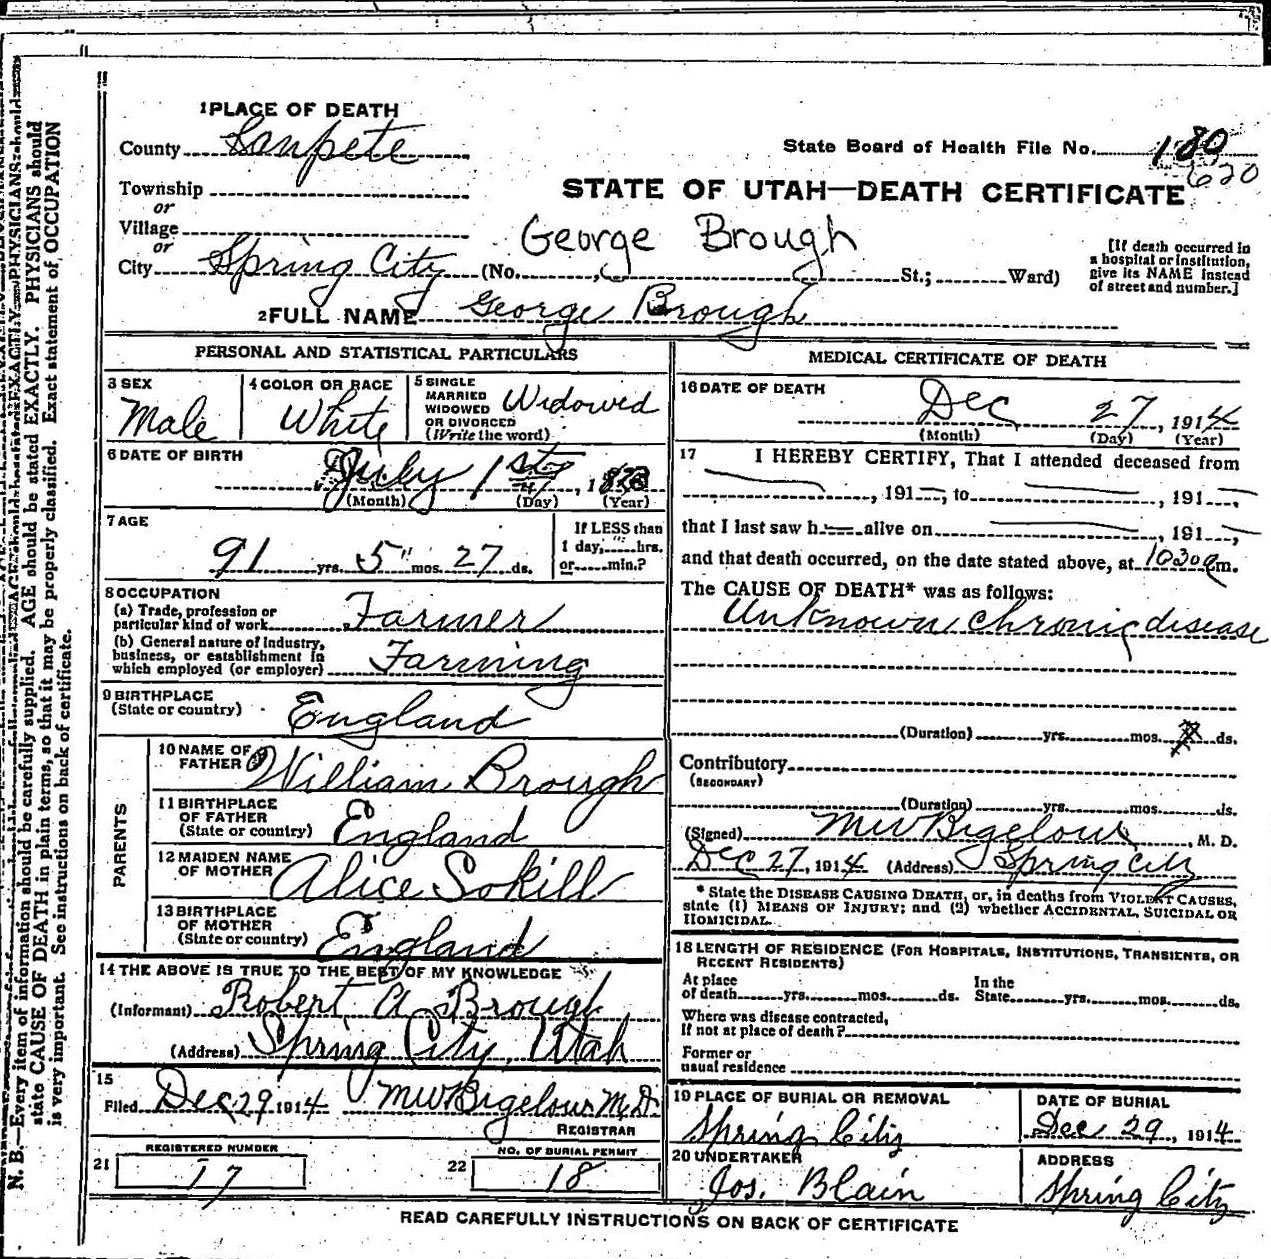 1 PLACE OF DEATH
County Sanpete
State Board of Health File No. 180
620
Township
or
Village
or
City Spring City (No. , St.; Ward)
STATE OF UTAH—DEATH CERTIFICATE
George Brough
[If death occurred in
a hospital or institution,
give its NAME instead
of street and number.]
2 FULL NAME George Brough
PERSONAL AND STATISTICAL PARTICULARS
3 SEX
Male
4 COLOR OR RACE
White
5 SINGLE
MARRIED
WIDOWED
OR DIVORCED
(Write the word)
Widowed
6 DATE OF BIRTH
July 1st , 1823
(Month) (Day) (Year)
7 AGE
91 yrs. 5 mos. 27 ds.
If LESS than
1 day, hrs.
or min.?
8 OCCUPATION
(a) Trade, profession or
particular kind of work Farmer
(b) General nature of industry,
business, or establishment in
which employed (or employer) Farming
9 BIRTHPLACE
(State or country) England
PARENTS
10 NAME OF
FATHER William Brough
11 BIRTHPLACE
OF FATHER
(State or country) England
12 MAIDEN NAME
OF MOTHER Alice Sokill
13 BIRTHPLACE
OF MOTHER
(State or country) England
14 THE ABOVE IS TRUE TO THE BEST OF MY KNOWLEDGE
(Informant) Robert A Brough
(Address) Spring City, Utah
15
Filed Dec 29 1914 MW Bigelow M.D.
REGISTRAR
REGISTERED NUMBER
21 17
NO. OF BURIAL PERMIT
22 18
MEDICAL CERTIFICATE OF DEATH
16 DATE OF DEATH
Dec 27 , 1914
(Month) (Day) (Year)
17 I HEREBY CERTIFY, That I attended deceased from
, 191 , to , 191 ,
that I last saw h alive on , 191 ,
and that death occurred, on the date stated above, at 1030a m.
The CAUSE OF DEATH* was as follows:
Unknown chronic disease
(Duration) yrs. mos. ds.
Contributory
(SECONDARY)
(Duration) yrs. mos. ds.
(Signed) MW Bigelow , M. D.
Dec 27, 1914 (Address) Spring City
* State the DISEASE CAUSING DEATH, or, in deaths from VIOLENT CAUSES,
state (1) MEANS OF INJURY; and (2) whether ACCIDENTAL, SUICIDAL OR
HOMICIDAL.
18 LENGTH OF RESIDENCE (FOR HOSPITALS, INSTITUTIONS, TRANSIENTS, OR
RECENT RESIDENTS)
At place
of death yrs. mos. ds.
In the
State yrs. mos. ds.
Where was disease contracted,
if not at place of death?
Former or
usual residence
19 PLACE OF BURIAL OR REMOVAL
Spring City
DATE OF BURIAL
Dec 29, 1914
20 UNDERTAKER
Jos. Blain
ADDRESS
Spring City
READ CAREFULLY INSTRUCTIONS ON BACK OF CERTIFICATE
N. B.—Every item of information should be carefully supplied. AGE should be stated EXACTLY. PHYSICIANS should
state CAUSE OF DEATH in plain terms, so that it may be properly classified. Exact statement of OCCUPATION
is very important. See instructions on back of certificate.